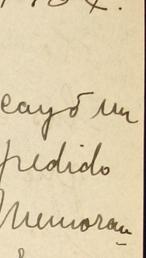 cayó un
pedido
Memoran_